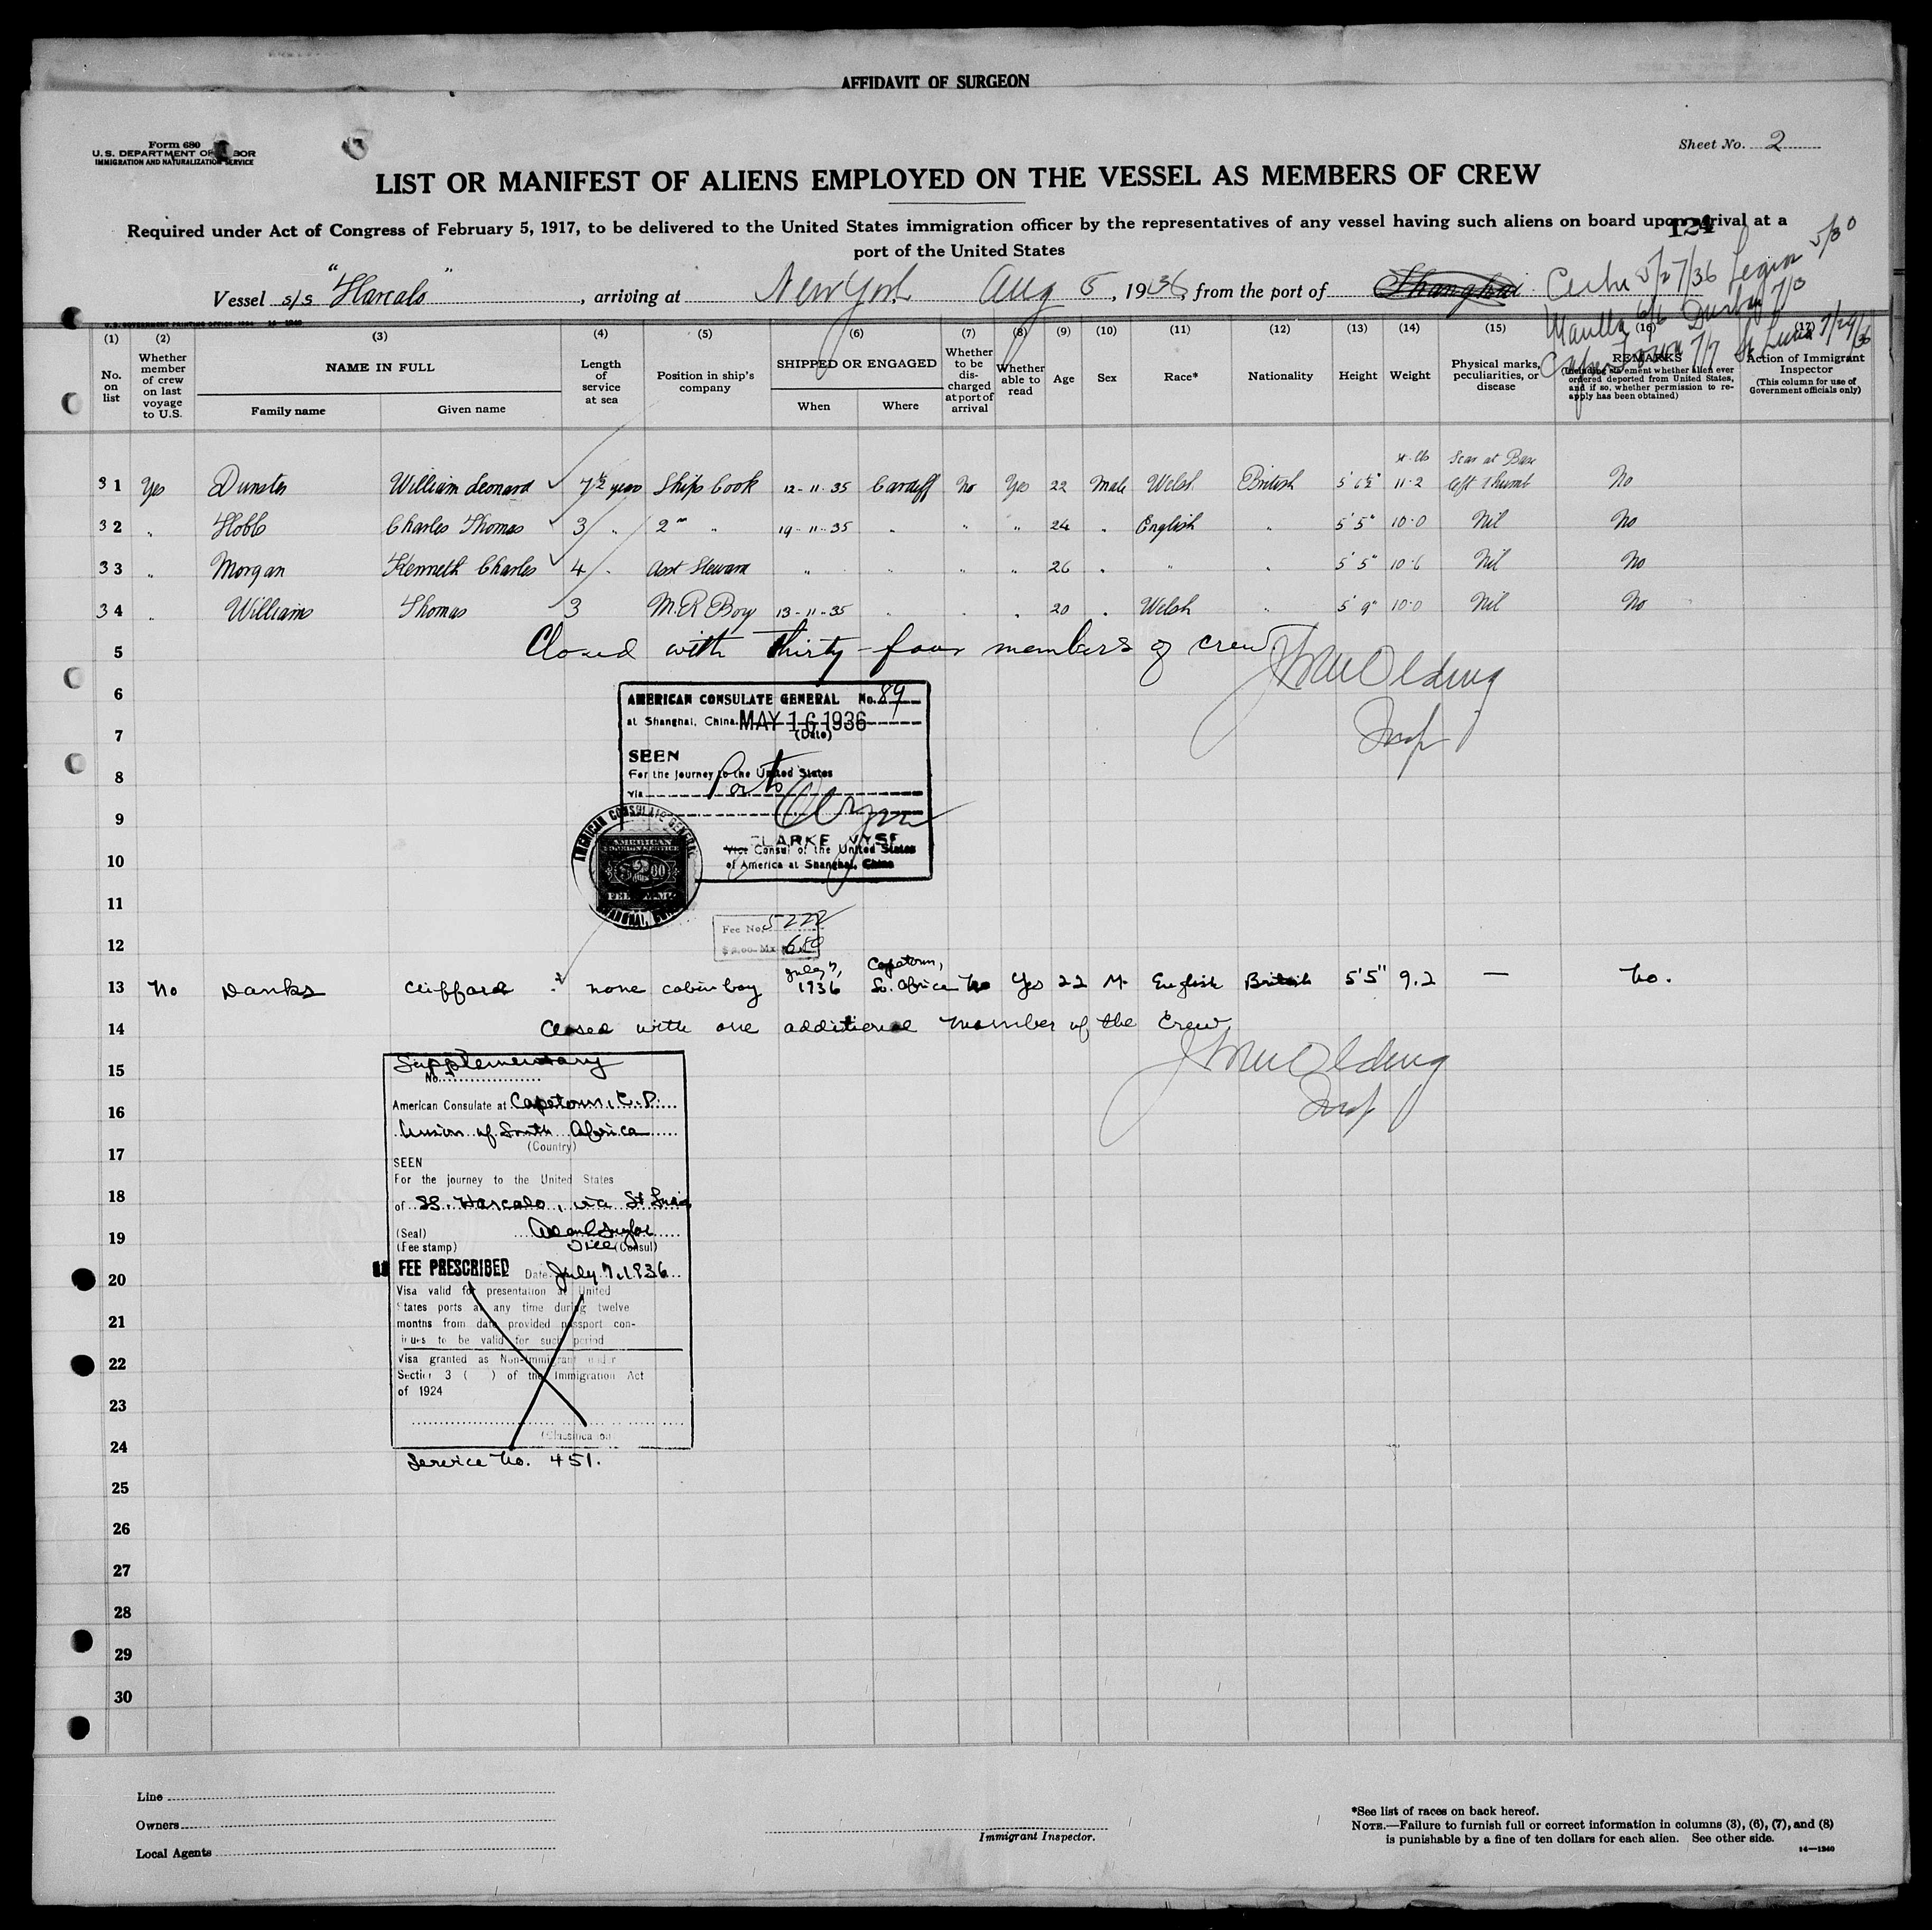 AFFIDAVIT OF SURGEON
Form 680
U.S. DEPARTMENT OF LABOR
IMMIGRATION AND NATURALIZATION SERVICE
Sheet No. 2
LIST OR MANIFEST OF ALIENS EMPLOYED ON THE VESSEL AS MEMBERS OF CREW
Required under Act of Congress of February 5, 1917, to be delivered to the United States immigration officer by the representatives of any vessel having such aliens on board upon arrival at a
port of the United States
124
Vessel s/s "Harcalo", arriving at New York Aug 5, 1936, from the port of Shanghai Cebu 5/27/36 5/30
Manilla 6/6 Durban 7/3
Capetown 7/7 St Lucia 7/29/36
U. S. GOVERNMENT PRINTING OFFICE
(1) (2) (3) (4) (5) (6) (7) (8) (9) (10) (11) (12) (13) (14) (15) (16) (17)
No. on list
Whether member of crew on last voyage to U.S.
NAME IN FULL
Family name Given name
Length of service at sea
Position in ship's company
SHIPPED OR ENGAGED
When Where
Whether to be discharged at port of arrival
Whether able to read
Age
Sex
Race*
Nationality
Height
Weight
Physical marks, peculiarities, or disease
REMARKS
(Including statement whether alien ever ordered deported from United States, and if so, whether permission to reapply has been obtained)
Action of Immigrant Inspector
(This column for use of Government officials only)
31 Yes Dunster William Leonard 7½ years Ships Cook 12-11-35 Cardiff No Yes 22 Male Welsh British 5' 6½" 11-2 Scar at Base left thumb No
32 " Charles Thomas 3 " 2nd " 19-11-35 " " " 24 " English " 5' 5" 10-0 Nil No
33 " Morgan Kenneth Charles 4 " Asst Steward " " " " 26 " " " 5' 5" 10-6 Nil No
34 " Williams Thomas 3 M.R Boy 13-11-35 " " " 20 " Welsh " 5' 9" 10-0 Nil No
5
Closed with thirty-four members of crew
6
7
8
9
10
11
12
AMERICAN CONSULATE GENERAL No. 89
at Shanghai, China. MAY 16 1936
(Date)
SEEN
For the journey to the United States
via
CLARKE VYSE
Vice Consul of the United States
of America at Shanghai, China
AMERICAN CONSULATE GENERAL
AMERICAN
FOREIGN SERVICE
$2.00
Fee No. 5222
13 No Danks Clifford none cabin boy July 7, 1936 Capetown, So. Africa No Yes 22 M. English British 5'5" 9.2 — No.
14
Closed with one additional member of the Crew.
15
16
17
18
19
20
21
22
23
24
Supplementary
No.
American Consulate at Capetown, C.P.
Union of South Africa
(Country)
SEEN
For the journey to the United States
of SS. Harcalo, via St Lucia
(Seal)
(Fee stamp) Vice (Consul)
FEE PRESCRIBED Date July 7, 1936
Visa valid for presentation at United
States ports at any time during twelve
months from date provided passport con-
tinues to be valid for such period
Visa granted as Non-Immigrant under
Section 3 ( ) of the Immigration Act
of 1924
(Classification)
Service No. 451.
25
26
27
28
29
30
Line
Owners
Local Agents
Immigrant Inspector.
*See list of races on back hereof.
NOTE.—Failure to furnish full or correct information in columns (3), (6), (7), and (8)
is punishable by a fine of ten dollars for each alien. See other side.
14—1240